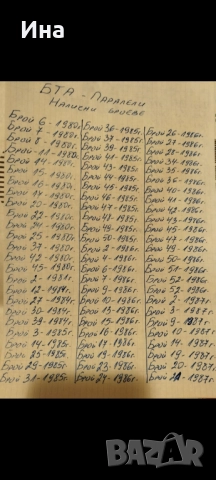 Ина
БТА - Паралели
Налични броеве
Брой 6 - 1980г.
Брой 7 - 1980г.
Брой 8 - 1980г.
Брой 11 - 1980г.
Брой 14 - 1980г.
Брой 15 - 1980г.
Брой 16 - 1980г.
Брой 17 - 1980г.
Брой 20 - 1980г.
Брой 22 - 1980г.
Брой 24 - 1980г.
Брой 25 - 1980г.
Брой 37 - 1980г.
Брой 42 - 1980г.
Брой 45 - 1980г.
Брой 7 - 1981г.
Брой 12 - 1984г.
Брой 27 - 1984г.
Брой 30 - 1984г.
Брой 39 - 1984г.
Брой 3 - 1985г.
Брой 14 - 1985г.
Брой 25 - 1985
Брой 29 - 1985г.
Брой 31 - 1985г.
Брой 36 - 1985г.
Брой 37 - 1985г.
Брой 39 - 1985г.
Брой 41 - 1985г.
Брой 43 - 1985г.
Брой 44 - 1985г.
Брой 45 - 1985г.
Брой 46 - 1985г.
Брой 47 - 1985г.
Брой 48 - 1985г.
Брой 49 - 1985г.
Брой 50 - 1985г.
Брой 2 - 1986г.
Брой 4 - 1986г.
Брой 6 - 1986г.
Брой 7 - 1986г.
Брой 9 - 1986г.
Брой 10 - 1986г.
Брой 13 - 1986г.
Брой 15 - 1986г.
Брой 16 - 1986г.
Брой 17 - 1986г.
Брой 19 - 1986г.
Брой 23 - 1986г.
Брой 24 - 1986г.
Брой 26 - 1986г.
Брой 27 - 1986г.
Брой 28 - 1986г.
Брой 34 - 1986г.
Брой 35 - 1986г.
Брой 36 - 1986г.
Брой 40 - 1986г.
Брой 41 - 1986г.
Брой 42 - 1986г.
Брой 43 - 1986г.
Брой 45 - 1986г.
Брой 49 - 1986г.
Брой 50 - 1986г.
Брой 51 - 1986г.
Брой 52 - 1986г.
Брой 2 - 1987г.
Брой 3 - 1987г.
Брой 9 - 1987г.
Брой 10 - 1987г.
Брой 14 - 1987г.
Брой 19 - 1987г.
Брой 20 - 1987г.
Брой 21 - 1987г.
bazar
БГ